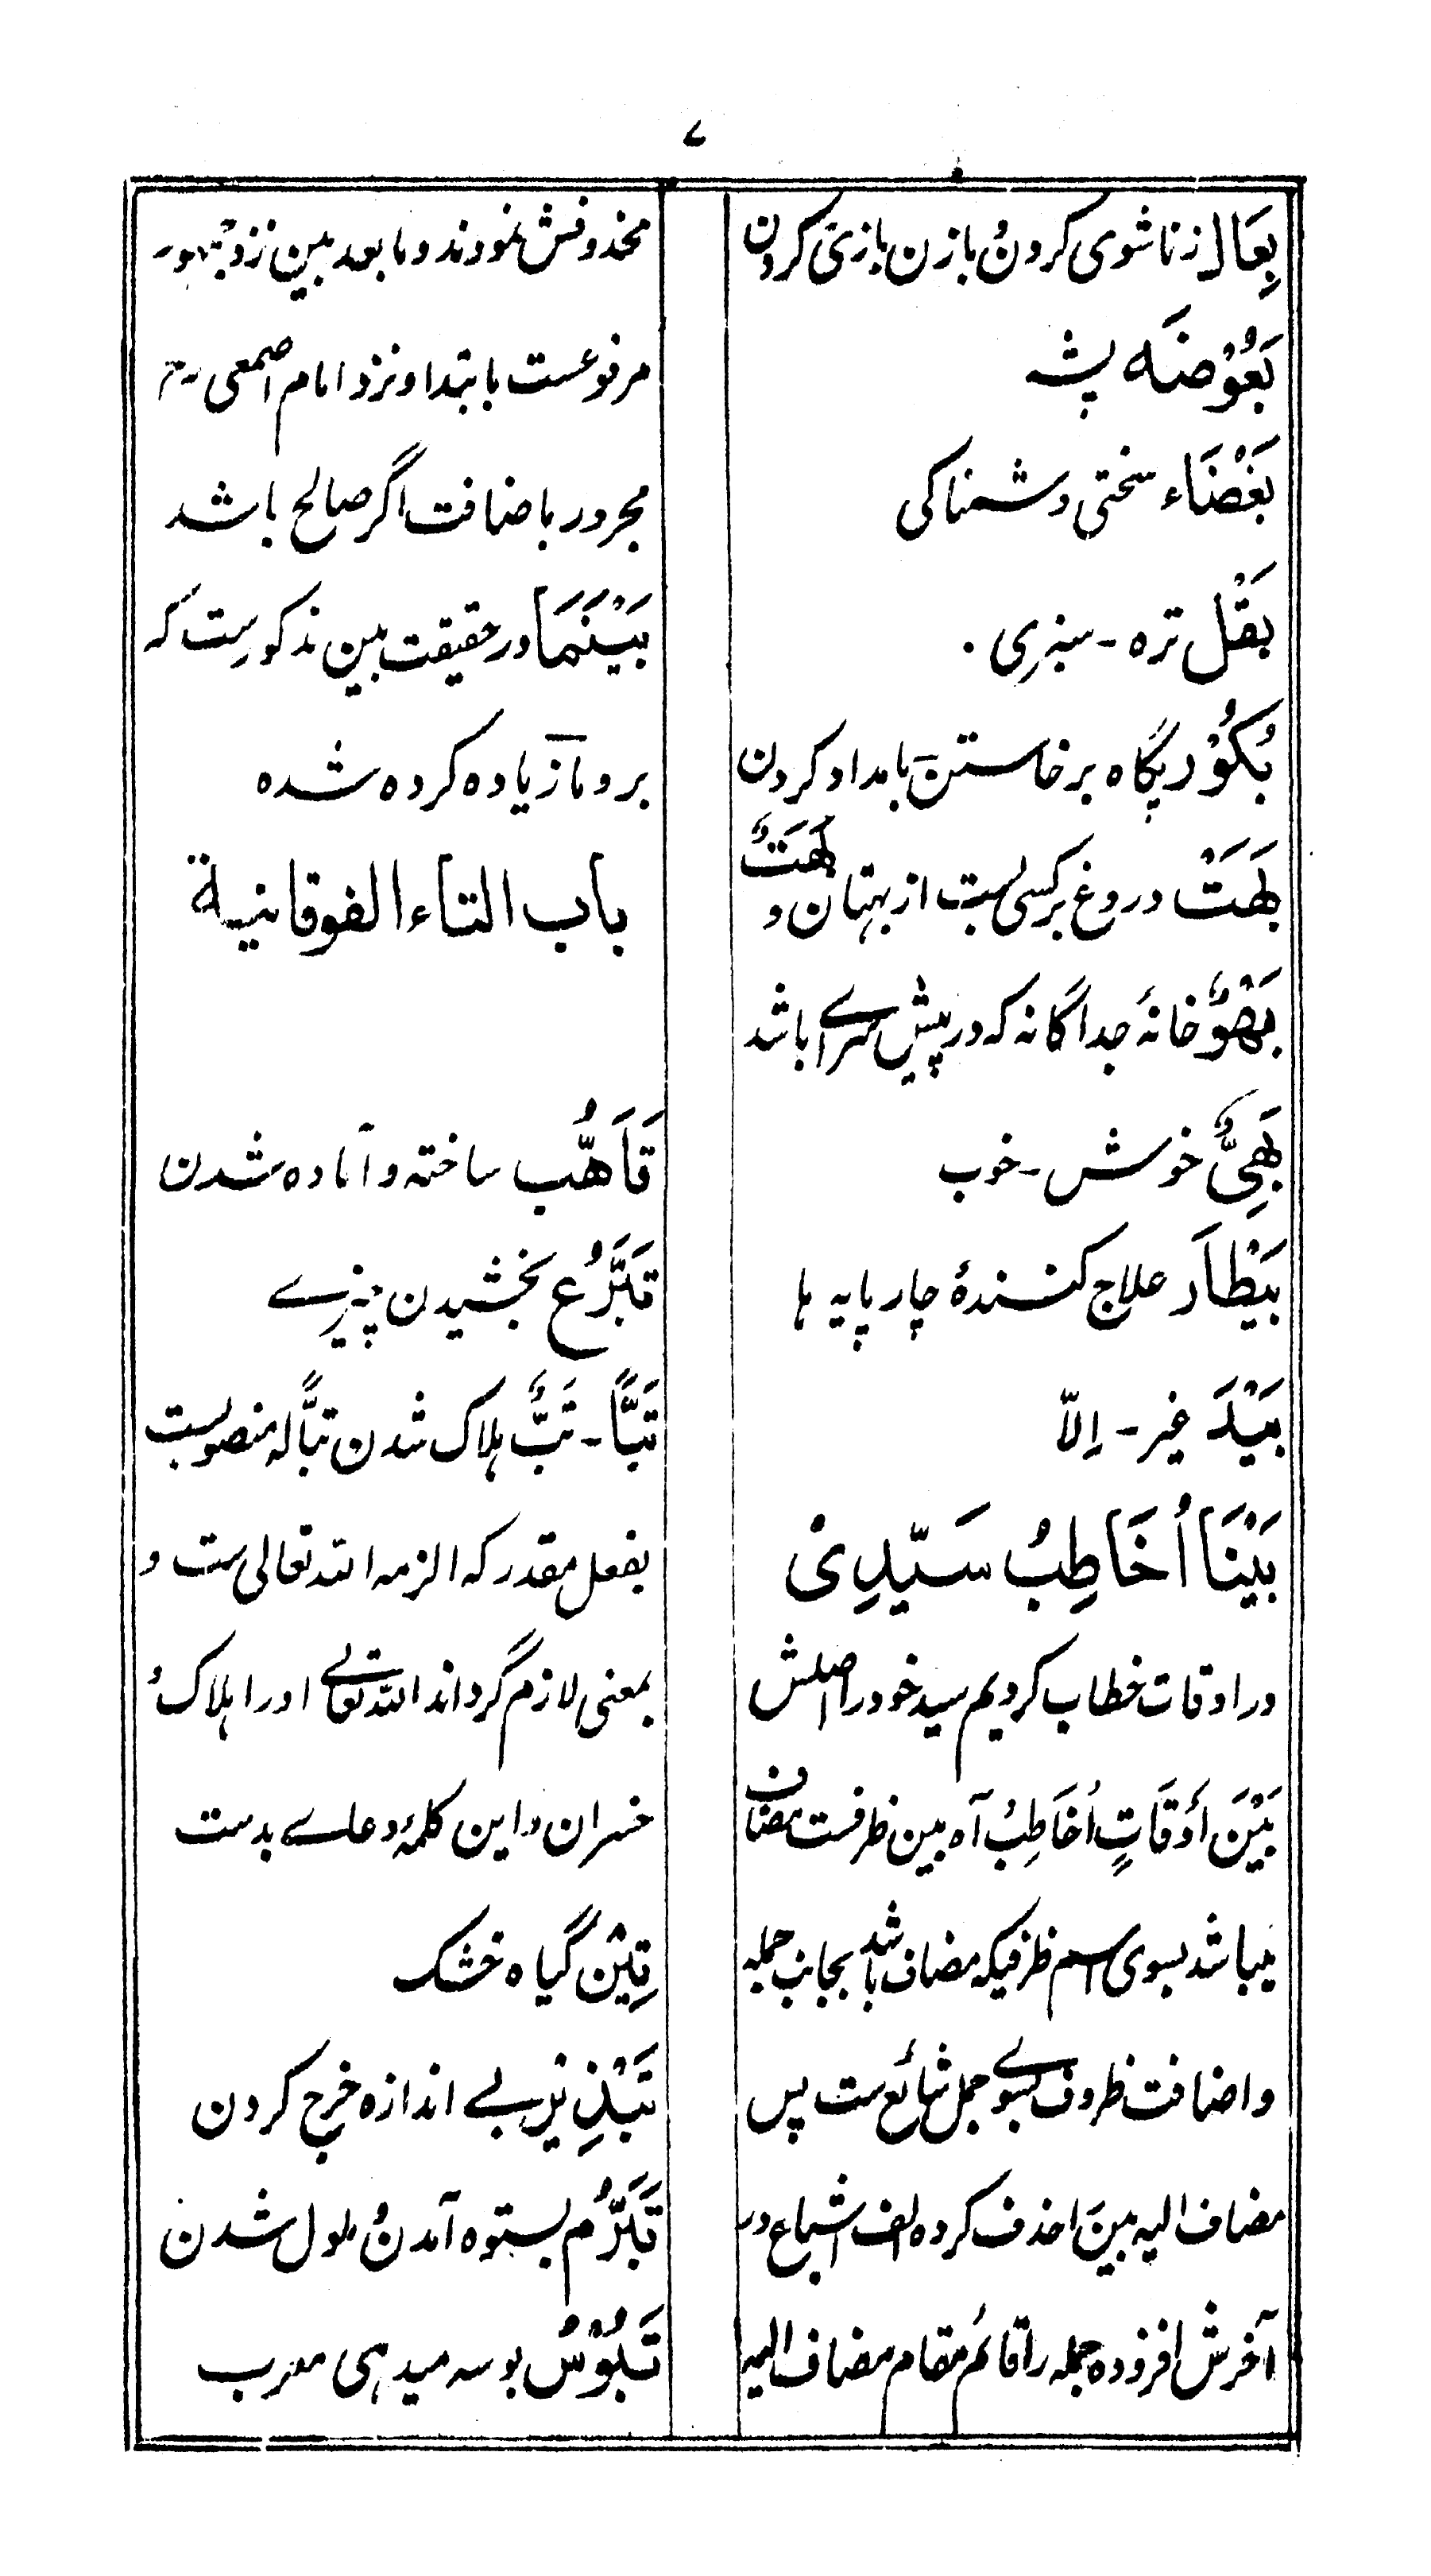 ۷
بِعَال زناشوی کردن و بازن بازی کردن
بَعُوْضَه پشه
بَغْضَاء سختی دشمناکی
بَقْل تره - سبزی ۰
بُكُوْر پگاه برخاستن - بامداد کردن
بَهَتْ دروغ برکسی بست از بهتان و بَهَتٌ
بَهْوٌ خانهٔ جداگانه که در پیش سرای باشد
بَهِیٌّ خوش - خوب
بَيْطَار علاج کنندهٔ چارپایه ها
بَيْدَ غیر - اِلّا
بَيْنَا اُخَاطِبُ سَيِّدِیْ
در اوقات خطاب کردیم سید خود را اصلش
بَيْنَ أَوْقَاتٍ أُخَاطِبُ آه بین ظرفست مضاف
میباشد بسوی اسم ظرفیکه مضاف باشد بجانب جمله
و اضافت ظروف بسوے جمل شائع ست پس
مضاف الیه بینَ احذف کرده الف اشباع در
آخرش افزوده جمله را قائم مقام مضاف الیه
محذوفش نمودند و مابعد بین نزد جمهور
مرفوعست بابتدا و نزد امام اصمعی رح
مجرور باضافت اگر صالح باشد
بَيْنَمَا در حقیقت بین مذکورست که
برو ما زیاده کرده شده
باب التاء الفوقانیة
تَاَهُّب ساخته و آماده شدن
تَبَرُّع بخشیدن چیزے
تَبًّا - تَبٌّ ہلاک شدن تبًّا له منصوبست
بفعل مقدر که الزمه الله تعالی ست و
بمعنی لازم گرداند الله تعالے اورا ہلاک و
خسران و این کلمهٔ دعاے بدست
تِبْن گیاه خشک
تَبْذِیْر بے اندازه خرج کردن
تَبَرُّم بستوه آمدن و ملول شدن
تَبُوْسُ بوسه میدهی معرب